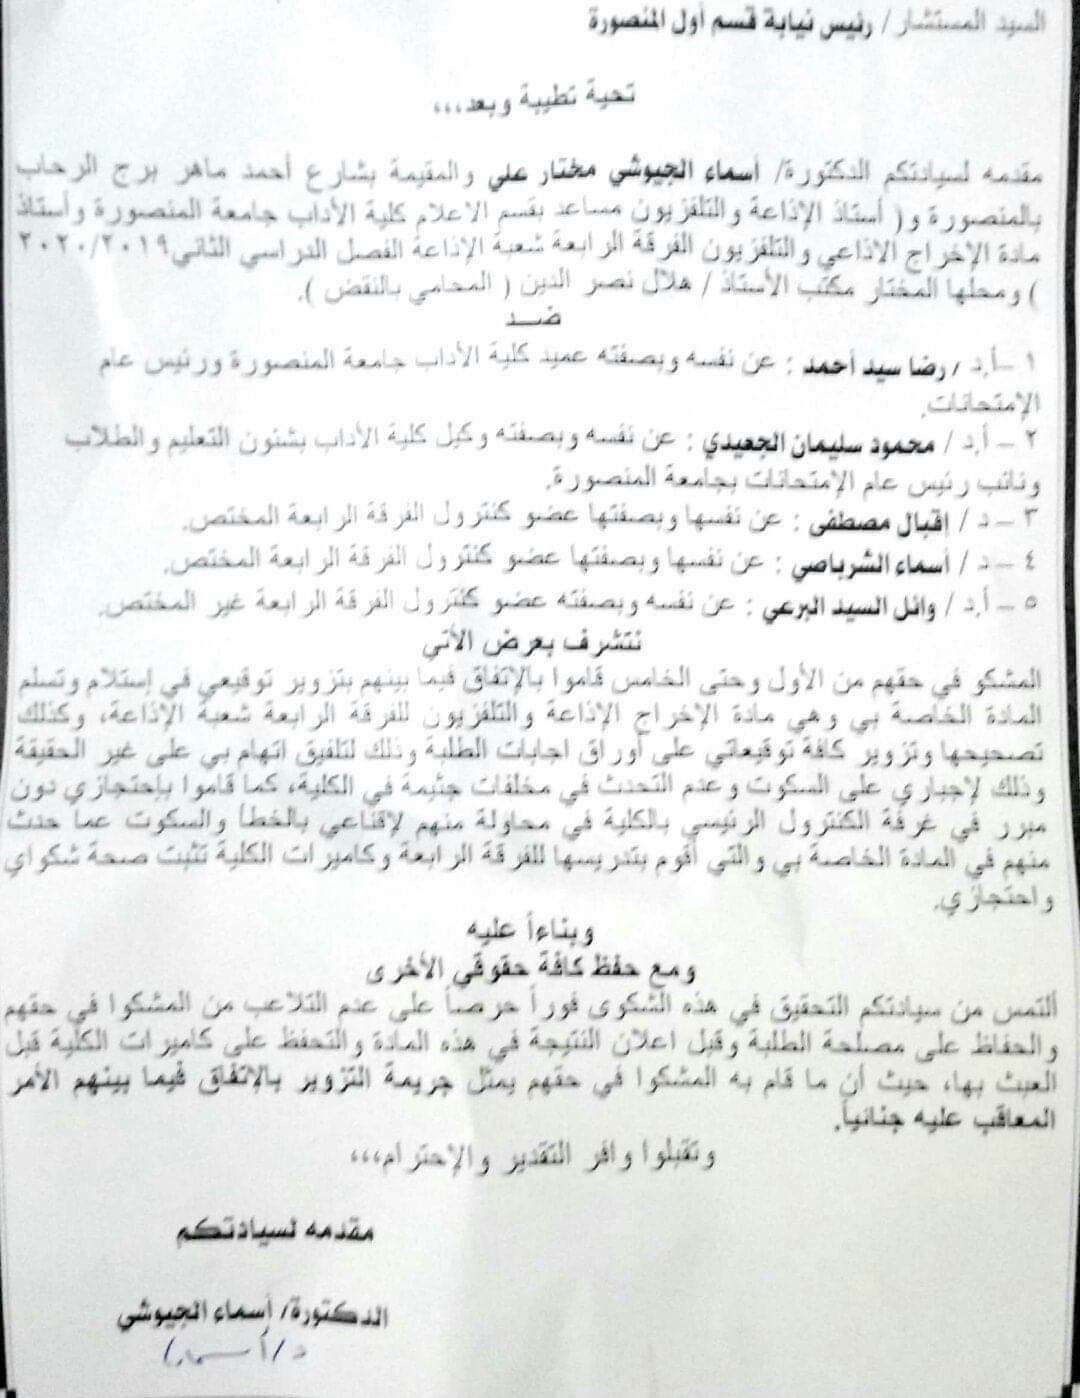 السيد المستشار / رئيس نيابة قسم أول المنصورة
تحية تطيبة وبعد،،،
مقدمه لسيادتكم الدكتورة/ أسماء الجيوشي مختار علي والمقيمة بشارع أحمد ماهر برج الرحاب
بالمنصورة و( أستاذ الإذاعة والتلفزيون مساعد بقسم الاعلام كلية الأداب جامعة المنصورة وأستاذ
مادة الإخراج الاذاعي والتلفزيون الفرقة الرابعة شعبة الإذاعة الفصل الدراسي الثاني٢٠٢٠/٢٠١٩
) ومحلها المختار مكتب الأستاذ / هلال نصر الدين ( المحامي بالنقض ).
ضـــد
١ –أ.د / رضا سيد أحمد : عن نفسه وبصفته عميد كلية الأداب جامعة المنصورة ورئيس عام
الإمتحانات.
٢ – أ.د / محمود سليمان الجعيدي : عن نفسه وبصفته وكيل كلية الأداب بشئون التعليم والطلاب
ونائب رئيس عام الإمتحانات بجامعة المنصورة.
٣ – د / إقبال مصطفى : عن نفسها وبصفتها عضو كنترول الفرقة الرابعة المختص.
٤ – د / أسماء الشرباصي : عن نفسها وبصفتها عضو كنترول الفرقة الرابعة المختص.
٥ – أ.د / وائل السيد البرعي : عن نفسه وبصفته عضو كنترول الفرقة الرابعة غير المختص.
نتشرف بعرض الأتي
المشكو في حقهم من الأول وحتى الخامس قاموا بالإتفاق فيما بينهم بتزوير توقيعي في إستلام وتسلم
المادة الخاصة بي وهي مادة الإخراج الإذاعة والتلفزيون للفرقة الرابعة شعبة الإذاعة، وكذلك
تصحيحها وتزوير كافة توقيعاتي على أوراق اجابات الطلبة وذلك لتلفيق اتهام بي على غير الحقيقة
وذلك لإجباري على السكوت وعدم التحدث في مخلفات جثيمة في الكلية، كما قاموا بإحتجازي دون
مبرر في غرفة الكنترول الرئيسي بالكلية في محاولة منهم لإقناعي بالخطأ والسكوت عما حدث
منهم في المادة الخاصة بي والتي أقوم بتدريسها للفرقة الرابعة وكاميرات الكلية تثبت صحة شكواي
واحتجازي.
وبناءاً عليه
ومع حفظ كافة حقوقي الأخرى
ألتمس من سيادتكم التحقيق في هذه الشكوى فوراً حرصاً على عدم التلاعب من المشكوا في حقهم
والحفاظ على مصلحة الطلبة وقبل اعلان النتيجة في هذه المادة والتحفظ على كاميرات الكلية قبل
العبث بها، حيث أن ما قام به المشكوا في حقهم يمثل جريمة التزوير بالإتفاق فيما بينهم الأمر
المعاقب عليه جنائياً.
وتقبلوا وافر التقدير والإحترام،،،
مقدمه لسيادتكم
الدكتورة/ أسماء الجيوشي
د/أسماء